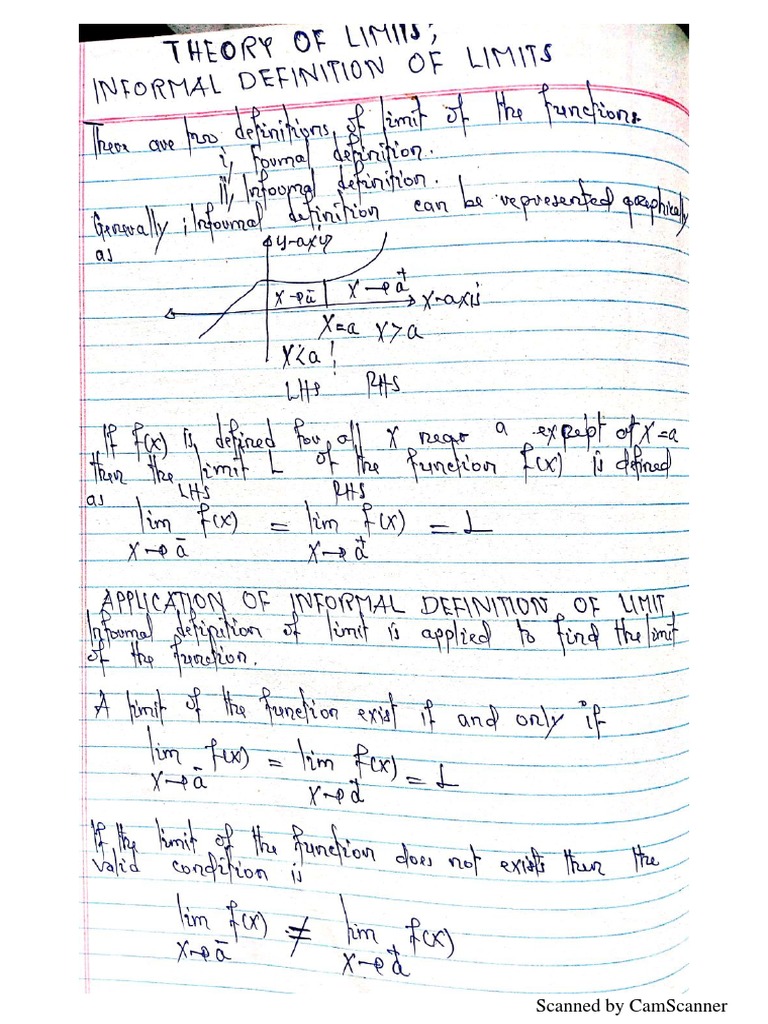 THEORY OF LIMITS;
INFORMAL DEFINITION OF LIMITS
There are two definitions of limit of the functions.
i, Formal definition.
ii, Informal definition.
Generally; Informal definition can be represented graphically
as
y-axis
x→a⁻ x→a⁺ x-axis
x=a x>a
x<a
LHS RHS
If f(x) is defined for all x near a except of x=a
then the limit L of the function f(x) is defined
as LHS RHS
lim f(x) = lim f(x) = L
x→a⁻ x→a⁺
APPLICATION OF INFORMAL DEFINITION OF LIMIT
Informal definition of limit is applied to find the limit
of the function.
A limit of the function exist if and only if
lim f(x) = lim f(x) = L
x→a⁻ x→a⁺
If the limit of the function does not exists then the
valid condition is
lim f(x) ≠ lim f(x)
x→a⁻ x→a⁺
Scanned by CamScanner